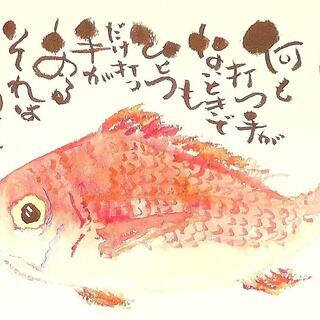 何も
打つ手が
ないときで
も
ひとつ
だけ打つ
手が
ある
それは